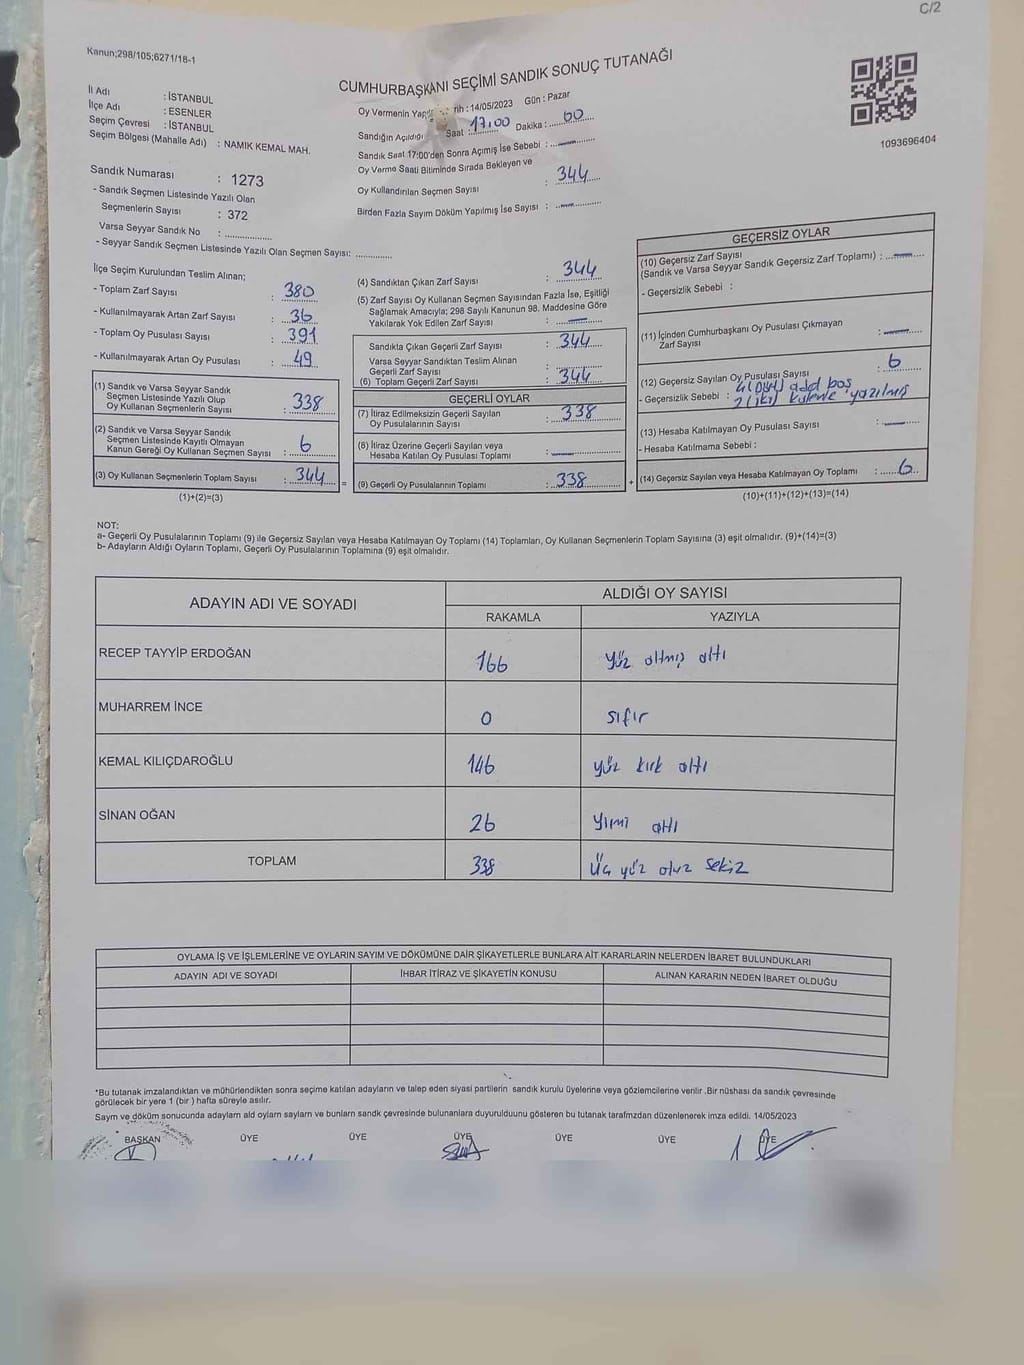 C/2
Kanun;298/105;6271/18-1
CUMHURBAŞKANI SEÇİMİ SANDIK SONUÇ TUTANAĞI
İl Adı : İSTANBUL
İlçe Adı : ESENLER
Seçim Çevresi : İSTANBUL
Seçim Bölgesi (Mahalle Adı) : NAMIK KEMAL MAH.
Oy Vermenin Yap rih : 14/05/2023 Gün : Pazar
Sandığın Açıldığı Saat : 17:00 Dakika : 00
Sandık Saat 17:00'den Sonra Açımış İse Sebebi : —
Oy Verme Saati Bitiminde Sırada Bekleyen ve
Oy Kullandırılan Seçmen Sayısı : 344
Birden Fazla Sayım Döküm Yapılmış İse Sayısı : —
1093696404
Sandık Numarası : 1273
- Sandık Seçmen Listesinde Yazılı Olan
Seçmenlerin Sayısı : 372
Varsa Seyyar Sandık No :
- Seyyar Sandık Seçmen Listesinde Yazılı Olan Seçmen Sayısı:
İlçe Seçim Kurulundan Teslim Alınan;
- Toplam Zarf Sayısı : 380
- Kullanılmayarak Artan Zarf Sayısı : 36
- Toplam Oy Pusulası Sayısı : 391
- Kullanılmayarak Artan Oy Pusulası : 49
(1) Sandık ve Varsa Seyyar Sandık
Seçmen Listesinde Yazılı Olup
Oy Kullanan Seçmenlerin Sayısı : 338
(2) Sandık ve Varsa Seyyar Sandık
Seçmen Listesinde Kayıtlı Olmayan
Kanun Gereği Oy Kullanan Seçmen Sayısı : 6
(3) Oy Kullanan Seçmenlerin Toplam Sayısı : 344 =
(1)+(2)=(3)
(4) Sandıktan Çıkan Zarf Sayısı : 344
(5) Zarf Sayısı Oy Kullanan Seçmen Sayısından Fazla İse, Eşitliği
Sağlamak Amacıyla; 298 Sayılı Kanunun 98. Maddesine Göre
Yakılarak Yok Edilen Zarf Sayısı : —
Sandıkta Çıkan Geçerli Zarf Sayısı : 344
Varsa Seyyar Sandıktan Teslim Alınan
Geçerli Zarf Sayısı :
(6) Toplam Geçerli Zarf Sayısı : 344
GEÇERLİ OYLAR
(7) İtiraz Edilmeksizin Geçerli Sayılan
Oy Pusulalarının Sayısı : 338
(8) İtiraz Üzerine Geçerli Sayılan veya
Hesaba Katılan Oy Pusulası Toplamı : —
(9) Geçerli Oy Pusulalarının Toplamı : 338 +
GEÇERSİZ OYLAR
(10) Geçersiz Zarf Sayısı
(Sandık ve Varsa Seyyar Sandık Geçersiz Zarf Toplamı) : —
- Geçersizlik Sebebi :
(11) İçinden Cumhurbaşkanı Oy Pusulası Çıkmayan
Zarf Sayısı : —
(12) Geçersiz Sayılan Oy Pusulası Sayısı : 6
- Geçersizlik Sebebi : 4(Dört) adet boş
2(iki) kalemle yazılmış
(13) Hesaba Katılmayan Oy Pusulası Sayısı : —
- Hesaba Katılmama Sebebi :
(14) Geçersiz Sayılan veya Hesaba Katılmayan Oy Toplamı : 6
(10)+(11)+(12)+(13)=(14)
NOT:
a- Geçerli Oy Pusulalarının Toplamı (9) ile Geçersiz Sayılan veya Hesaba Katılmayan Oy Toplamı (14) Toplamları, Oy Kullanan Seçmenlerin Toplam Sayısına (3) eşit olmalıdır. (9)+(14)=(3)
b- Adayların Aldığı Oyların Toplamı, Geçerli Oy Pusulalarının Toplamına (9) eşit olmalıdır.
ADAYIN ADI VE SOYADI
ALDIĞI OY SAYISI
RAKAMLA YAZIYLA
RECEP TAYYİP ERDOĞAN 166 yüz altmış altı
MUHARREM İNCE 0 sıfır
KEMAL KILIÇDAROĞLU 146 yüz kırk altı
SİNAN OĞAN 26 yirmi altı
TOPLAM 338 Üç yüz otuz sekiz
OYLAMA İŞ VE İŞLEMLERİNE VE OYLARIN SAYIM VE DÖKÜMÜNE DAİR ŞİKAYETLERLE BUNLARA AİT KARARLARIN NELERDEN İBARET BULUNDUKLARI
ADAYIN ADI VE SOYADI İHBAR İTİRAZ VE ŞİKAYETİN KONUSU ALINAN KARARIN NEDEN İBARET OLDUĞU
*Bu tutanak imzalandıktan ve mühürlendikten sonra seçime katılan adayların ve talep eden siyasi partilerin sandık kurulu üyelerine veya gözlemcilerine verilir .Bir nüshası da sandık çevresinde
görülecek bir yere 1 (bir ) hafta süreyle asılır.
Saym ve döküm sonucunda adaylarn ald oylarn saylarn ve bunlarn sandk çevresinde bulunanlara duyurulduunu gösteren bu tutanak tarafmzdan düzenlenerek imza edildi. 14/05/2023
BAŞKAN ÜYE ÜYE ÜYE ÜYE ÜYE ÜYE